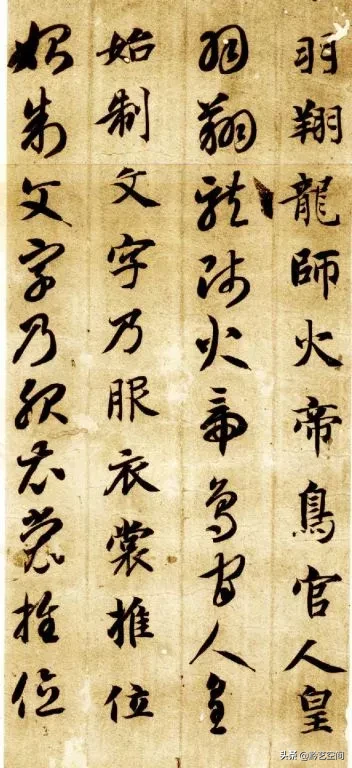 羽翔龍師火帝鳥官人皇
羽翔龍師火帝鳥官人皇
始制文字乃服衣裳推位
始制文字乃服衣裳推位
头条 @黔艺空间